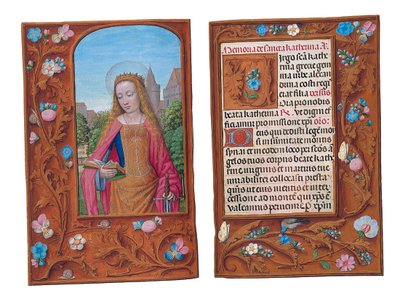 Memoria de sancta katherina A͞.
Irgo scā kath
erina grece gem
ma urbe alexan
drina costi regis
erat filia versus
Ora pro nobis
beata katherina R͞. ut digni e
ficiamur promissione xp̄i oro.
Deus qui dedisti legē moi
si in sūmitate montis
synai et in eodem loco per scōs a
gelos tuos corpus beate kathe
rine virginis et martiris tue
mirabiliter collocasti presta
quis ut eius meritis et inter
cessione ad montē qui xp̄s ē
valeamus pervenire P xpm̄